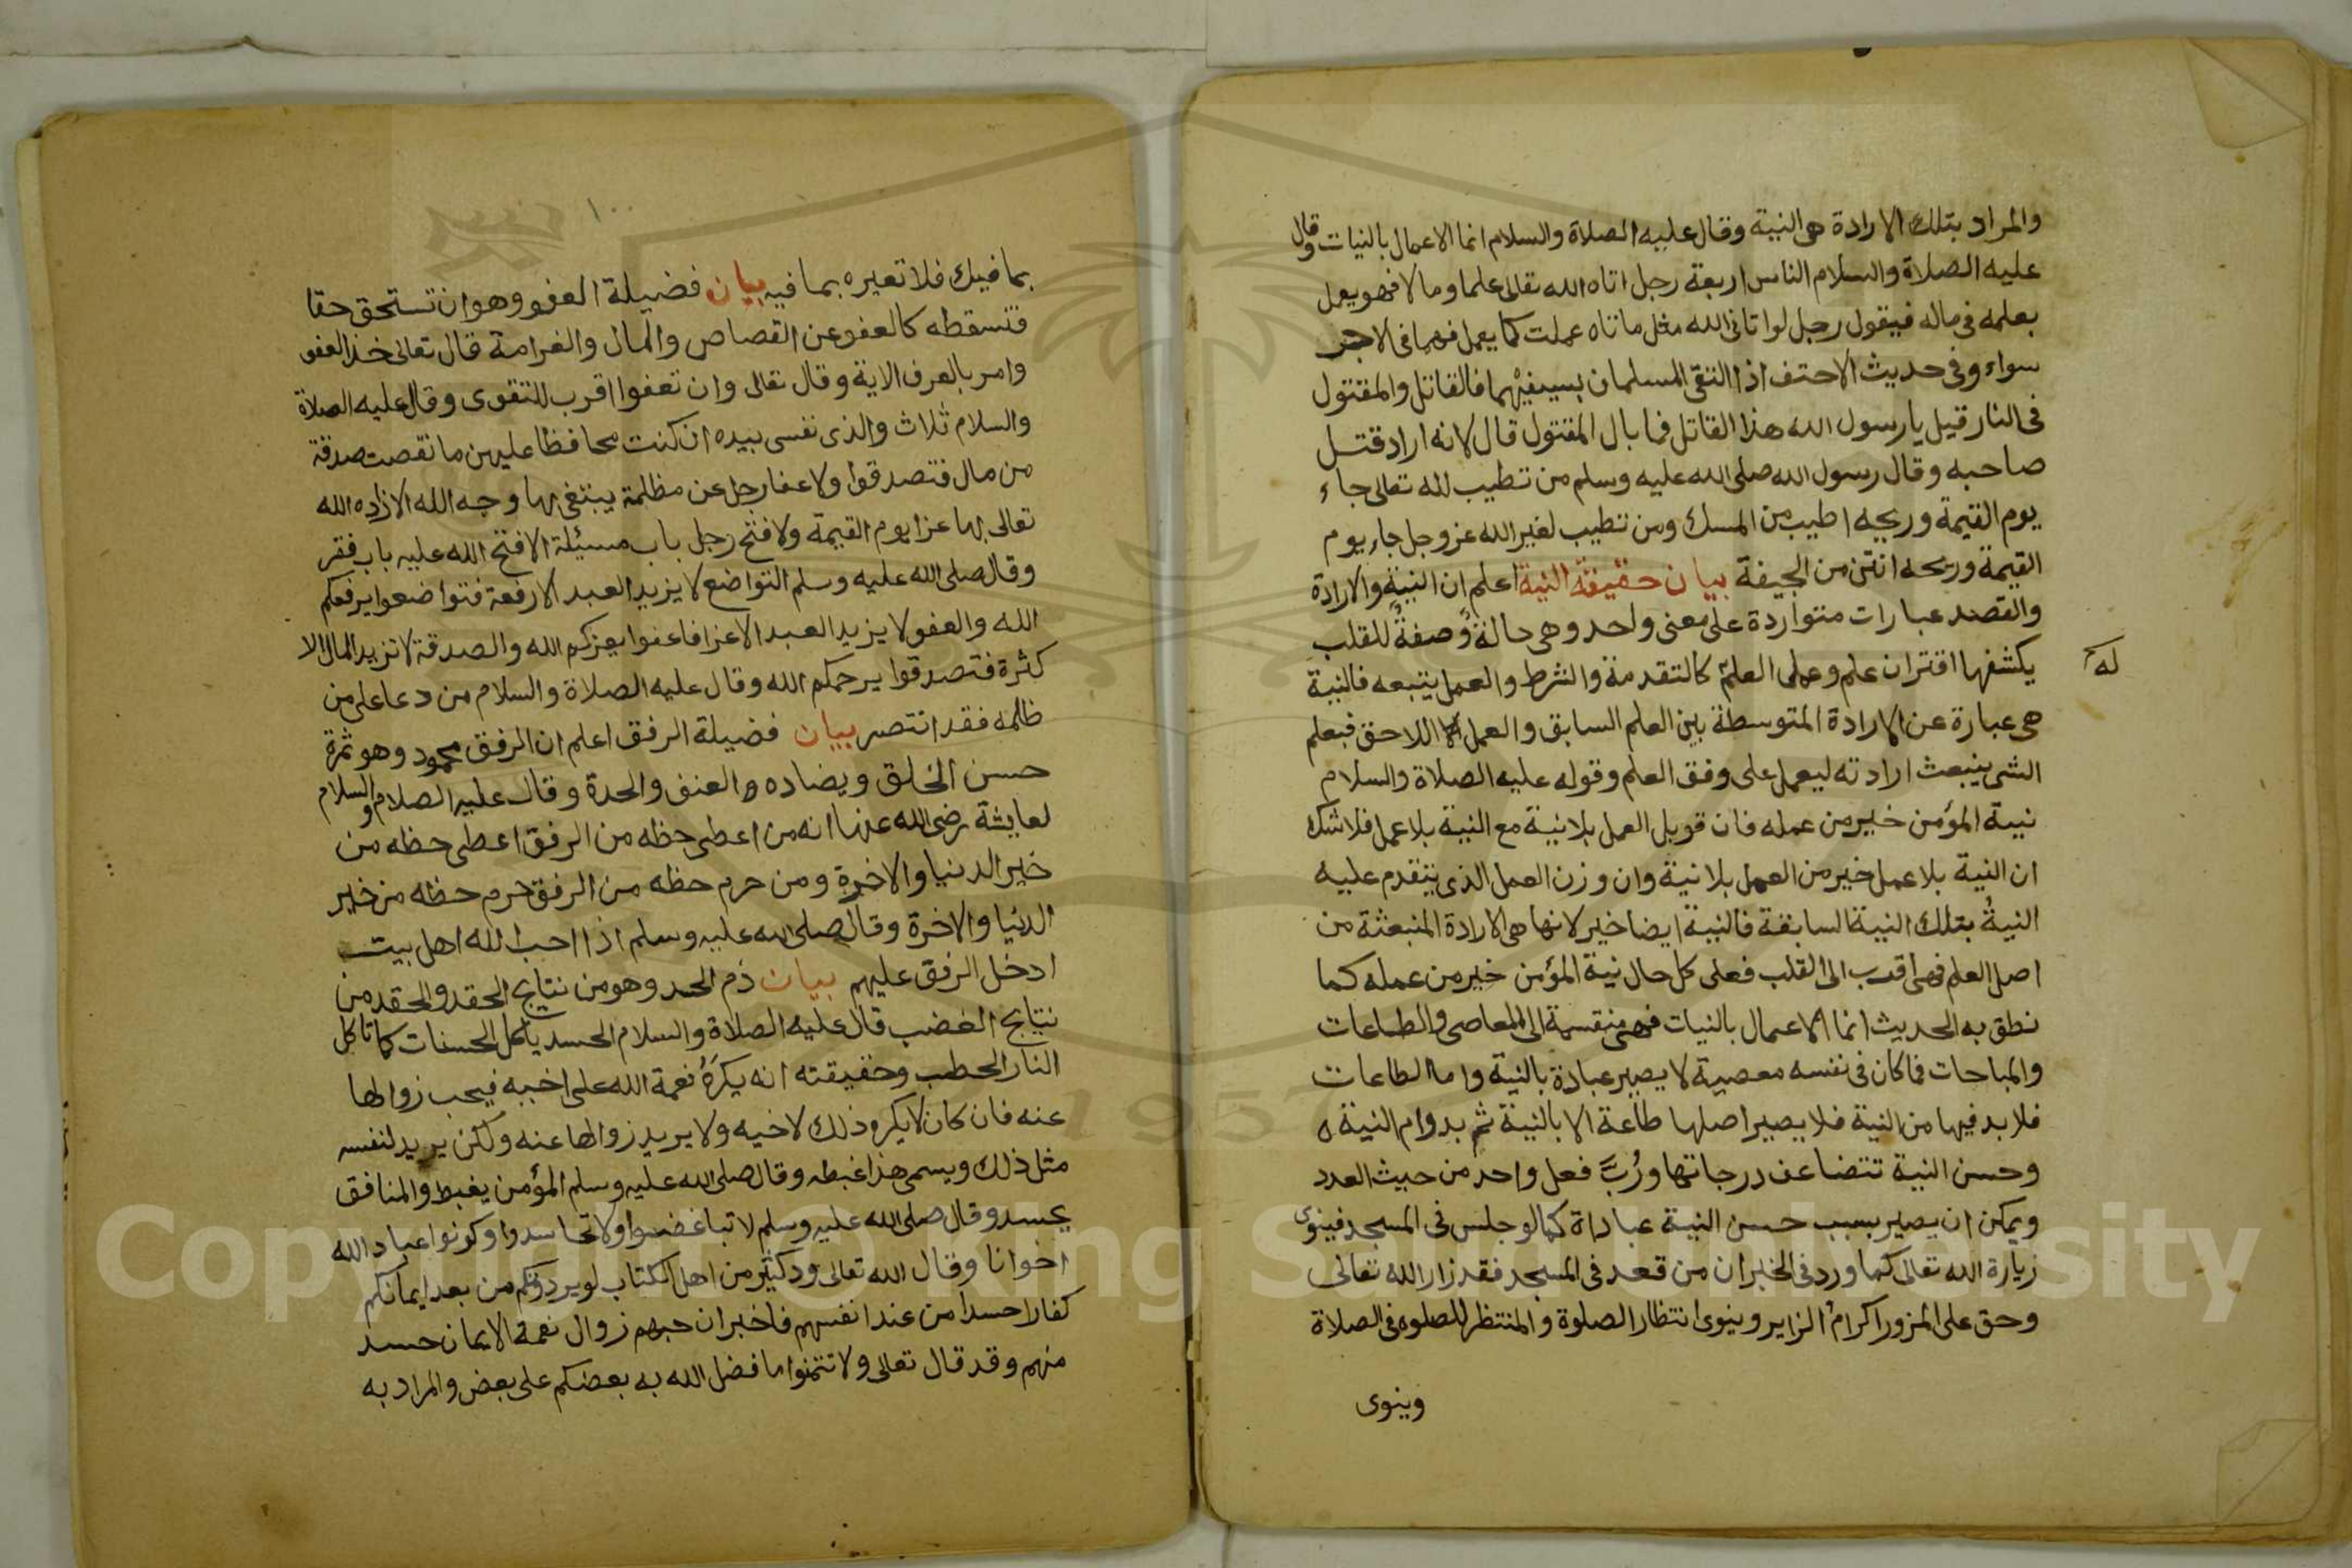 والمراد بتلك الارادة هى النية وقال عليه الصلاة والسلام انما الاعمال بالنيات وقال
عليه الصلاة والسلام الناس اربعة رجل اتاه الله تعالى علما ومالا فهو يعمل
بعلمه فى ماله فيقول رجل لو اتانى الله مثل ما اتاه عملت كما يعمل فهما فى الاجر
سواء وفى حديث الاحنف اذا التقى المسلمان بسيفيهما فالقاتل والمقتول
فى النار قيل يا رسول الله هذا القاتل فما بال المقتول قال لانه اراد قتل
صاحبه وقال رسول الله صلى الله عليه وسلم من تطيب لله تعالى جاء
يوم القيمة وريحه اطيب من المسك ومن تطيب لغير الله عز وجل جاء يوم
القيمة وريحه انتن من الجيفة بيان حقيقة النية اعلم ان النية والارادة
والقصد عبارات متواردة على معنى واحد وهى حالة وصفة للقلب
يكشفها اقتران علم وعمل العلم كالتقدمة والشرط والعمل يتبعه فالنية
له
هى عبارة عن الارادة المتوسطة بين العلم السابق والعمل اللاحق فيعلم
الشى ينبعث ارادته ليعمل على وفق العلم وقوله عليه الصلاة والسلام
نية المؤمن خير من عمله فان قوبل العمل بلا نية مع النية بلا عمل فلا شك
ان النية بلا عمل خير من العمل بلا نية وان وزن العمل الذى يتقدم عليه
النية بتلك النية السابقة فالنية ايضا خير لانها هى الارادة المنبعثة من
اصل العلم فهى اقرب الى القلب فعلى كل حال نية المؤمن خير من عمله كما
نطق به الحديث انما الاعمال بالنيات فهى منقسمة الى المعاصى والطاعات
والمباحات فما كان فى نفسه معصية لا يصير عبادة بالنية واما الطاعات
فلا بد فيها من النية فلا يصير اصلها طاعة الا بالنية ثم بدوام النية
وحسن النية تتضاعف درجاتها ورُبّ فعل واحد من حيث العدد
ويمكن ان يصير بسبب حسن النية عباداة كما لو جلس فى المسجد فينوى
زيارة الله تعالى كما ورد فى الخبر ان من قعد فى المسجد فقد زار الله تعالى
وحق على المزور اكرام الزاير وينوى انتظار الصلوة والمنتظر للصلوة فى الصلاة
وينوى
١٠٠
بما فيك فلا تعيره بما فيه بيان فضيلة العفو وهو ان تستحق حقا
فتسقطه كالعفو عن القصاص والمال والغرامة قال تعالى خذ العفو
وامر بالعرف الاية وقال تعالى وان تعفوا اقرب للتقوى وقال عليه الصلاة
والسلام ثلاث والذى نفسى بيده ان كنت محافظا عليهن ما نقصت صدقة
من مال فتصدقوا ولا عفا رجل عن مظلمة يبتغى بها وجه الله الا زاده الله
تعالى بها عزا يوم القيمة ولا فتح رجل باب مسئلة الا فتح الله عليه باب فقر
وقال صلى الله عليه وسلم التواضع لا يزيد العبد الا رفعة فتواضعوا يرفعكم
الله والعفو لا يزيد العبد الا عزا فاعفوا يعزكم الله والصدقة لا تزيد المال الا
كثرة فتصدقوا يرحمكم الله وقال عليه الصلاة والسلام من دعا على من
ظلمه فقد انتصر بيان فضيلة الرفق اعلم ان الرفق محمود وهو ثمرة
حسن الخلق ويضاده العنف والحدة وقال عليه الصلام والسلام
لعايشة رضى الله عنها انه من اعطى حظه من الرفق اعطى حظه من
خير الدنيا والاخرة ومن حرم حظه من الرفق حرم حظه من خير
الدنيا والاخرة وقال صلى الله عليه وسلم اذا احب الله اهل بيت
ادخل الرفق عليهم بيان ذم الحسد وهو من نتايج الحقد والحقد من
نتايج الغضب قال عليه الصلاة والسلام الحسد ياكل الحسنات كما تاكل
النار الحطب وحقيقته انه يكرَهُ نعمة الله على اخيه فيحب زوالها
عنه فان كان لا يكره ذلك لاخيه ولا يريد زوالها عنه ولكن يريد لنفسه
مثل ذلك ويسمى هذا غبطه وقال صلى الله عليه وسلم المؤمن يغبط والمنافق
يحسد وقال صلى الله عليه وسلم لا تباغضوا ولا تحاسدوا وكونوا عباد الله
اخوانا وقال الله تعالى ود كثير من اهل الكتاب لو يردونكم من بعد ايمانكم
كفارا حسدا من عند انفسهم فاخبر ان حبهم زوال نعمة الايمان حسد
منهم وقد قال تعالى ولا تتمنوا ما فضل الله به بعضكم على بعض والمراد به
Copyright © King Saud University
1957